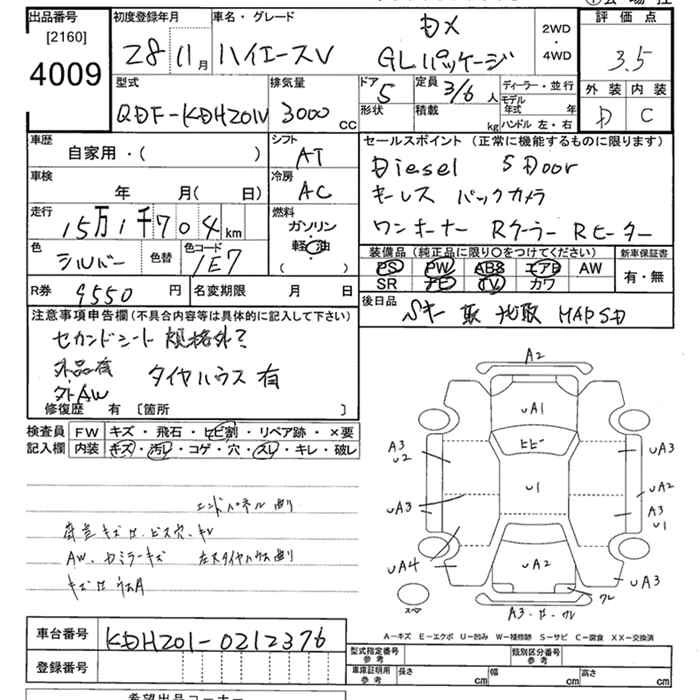 出品番号
[2160]
4009
初度登録年月
28 11月
車名・グレード
ハイエースV
DX
GLパッケージ
2WD
・
4WD
評価点
3.5
外装 内装
D C
型式
QDF-KDH201V
排気量
3000 CC
ドア
5
形状
定員
3/6 人
積載
kg
ディーラー・並行
モデル
年式 年
ハンドル 左・右
車歴
自家用・( )
シフト
AT
車検
年 月( 日)
冷房
AC
走行
15万1千704km
燃料
ガソリン
軽油
( )
色
シルバー
色替
色コード
1E7
R券
9550 円
名変期限 月 日
セールスポイント (正常に機能するものに限ります)
Diesel 5Door
キーレス バックカメラ
ワンオーナー Rクーラー Rヒーター
装備品(純正品に限り○をつけてください) 新車保証書
PS PW ABS エアB AW
SR ナビ TV カワ
有・無
後日品
Sキー 取 記取 MAPSD
注意事項申告欄(不具合内容等は具体的に記入して下さい)
セカンドシート 規格外?
外品有
外AW
タイヤハウス 有
修復歴 有 〔箇所 〕
検査員
記入欄
FW キズ・飛石・ヒビ割・リペア跡・×要
内装 キズ・汚レ・コゲ・穴・スレ・キレ・破レ
エンドパネル曲り
荷室キズ凹、ビス穴、キレ
AW、ドミラーキズ 左スタイヤハウス曲り
キズ凹 UA
A2
uA1
ヒビ
A3
u2
uA3
u1
uA3
uA2
A3
u1
uA4
uA2
uA3
ワレ
スペア
A3・凹・ワレ
A-キズ E-エクボ U-凹み W-補修跡 S-サビ C-腐食 XX-交換済
車台番号
KDH201-0212376
登録番号
型式指定番号
参考
類別区分番号
参考
車庫証明用
参考
長さ cm 幅 cm 高さ cm
希望出品コーナー